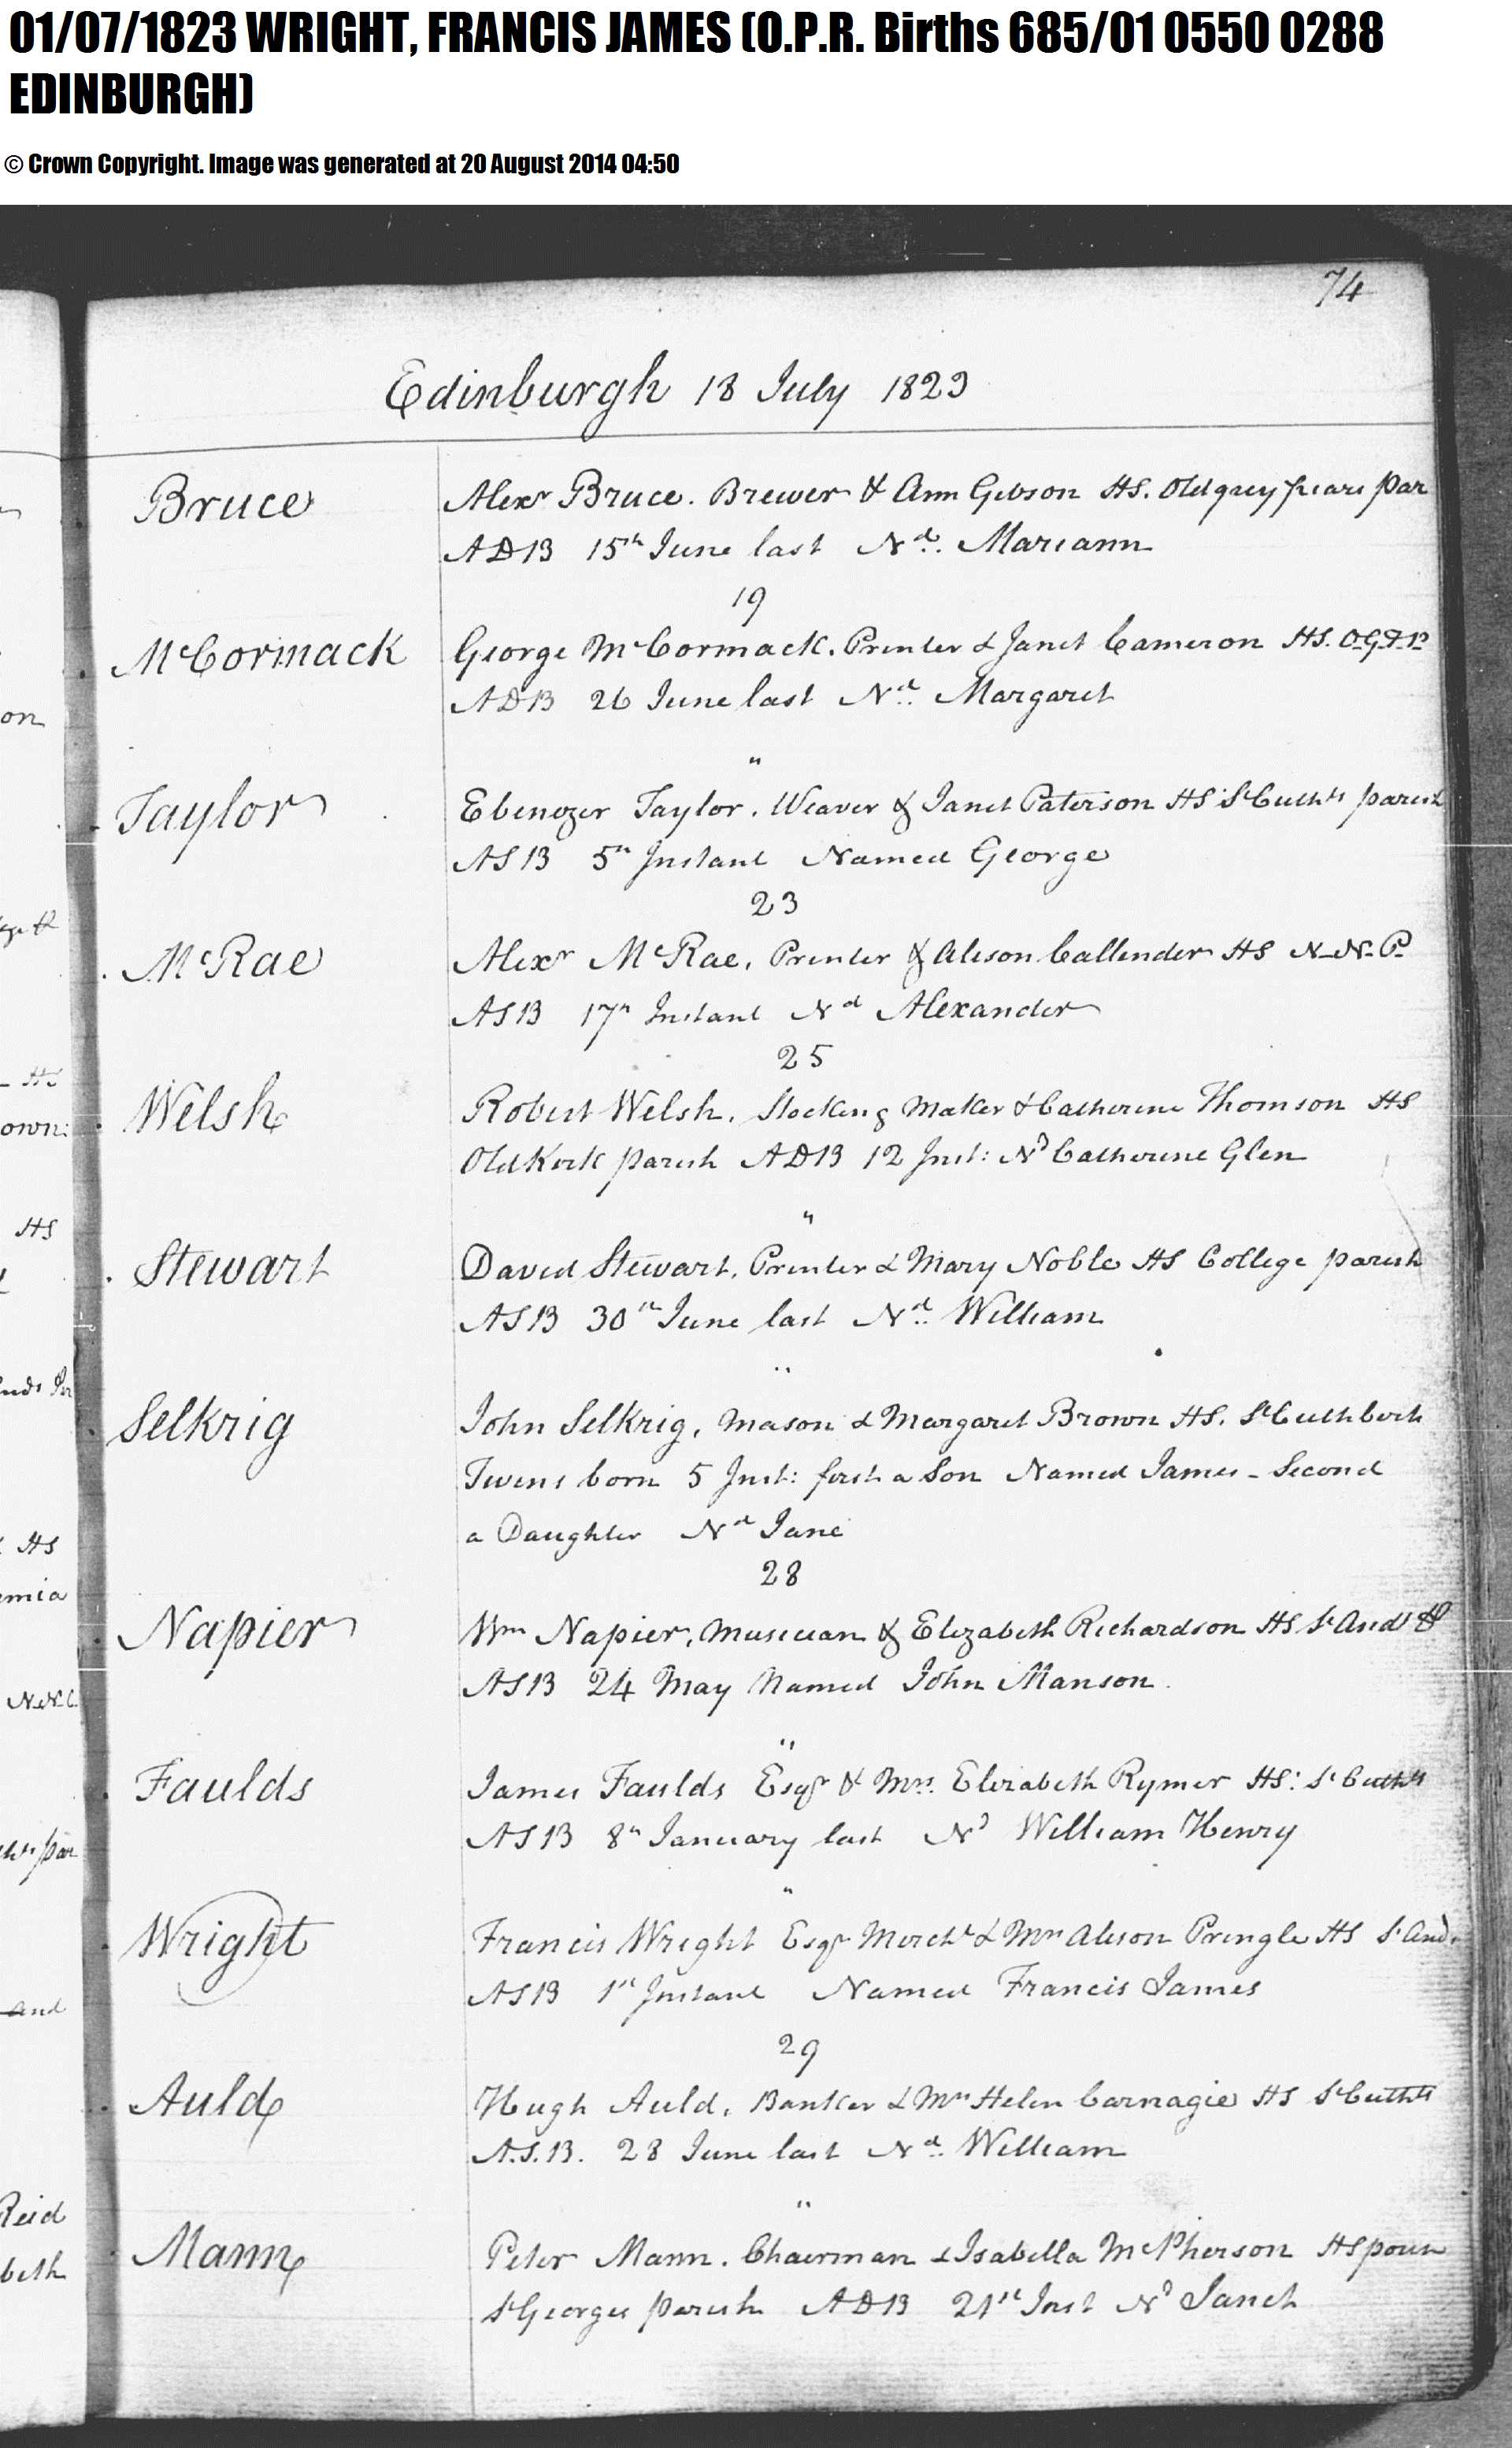 01/07/1823 WRIGHT, FRANCIS JAMES (O.P.R. Births 685/01 0550 0288
EDINBURGH)
© Crown Copyright. Image was generated at 20 August 2014 04:50
74
Edinburgh 18 July 1823
Bruce
Alexr Bruce. Brewer & Ann Gibson HS. Old grey friars Par
ADB 15th June last Nd. Mariann
19
McCormack
George McCormack. Printer & Janet Cameron HS. O.G.F.P
ADB 26 June last Nd. Margaret
"
Taylor
Ebenezer Taylor. Weaver & Janet Paterson HS St Cuthts parish
ASB 5th Instant Named George
23
McRae
Alexr McRae, Printer & Alison Callender HS N-N-P
ASB 17th Instant Nd Alexander
25
Welsh
Robert Welsh. Stocking Maker & Catherine Thomson HS
Old Kirk parish ADB 12 Inst: Nd Catherine Glen
"
Stewart
David Stewart. Printer & Mary Noble HS College parish
ASB 30th June last Nd. William
"
Selkrig
John Selkrig, Mason & Margaret Brown HS. St Cuthberts
Twins born 5 Inst: first a Son Named James - Second
a Daughter Nd Jane
28
Napier
Wm Napier, Musician & Elizabeth Richardson HS St Ands P
ASB 24 May Named John Manson.
"
Faulds
James Faulds Esqr & Mrs. Elizabeth Rymer HS: St Cuthts
ASB 8th January last Nd William Henry
"
Wright
Francis Wright Esqr Mercht & Mrs Alison Pringle HS St And.
ASB 1st Instant Named Francis James
29
Auld
Hugh Auld, Banker & Mrs Helen Carnagie HS St Cuthts
A.S.B. 28 June last Nd. William
"
Mann
Peter Mann. Chairman & Isabella McPherson HS
St Georges parish ADB 21st Inst Nd Janet
on
HS
own:
HS
HS
emia
and
Reid
beth